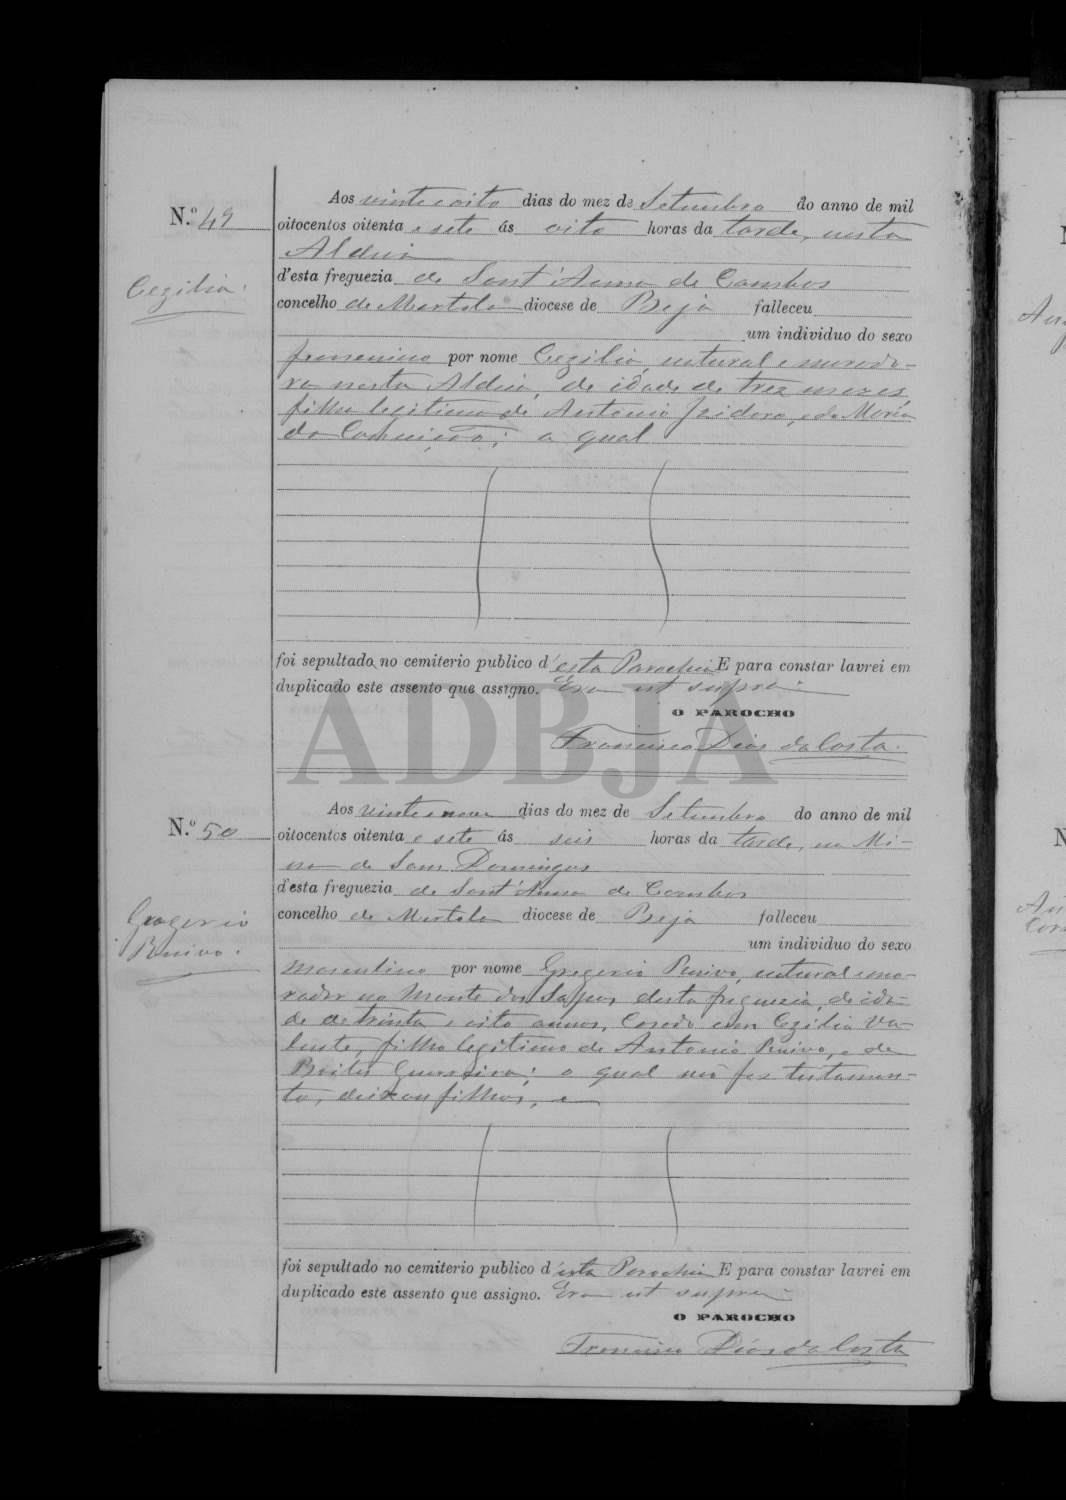 Aos vinte e oito dias do mez de Setembro do anno de mil
N.º 49
oitocentos oitenta e sete ás oito horas da tarde, nesta
Aldeia
d'esta freguezia de Sant'Anna de Cambas
Cezilia.
concelho de Mertola diocese de Beja falleceu
um individuo do sexo
femenino por nome Cezilia, natural e morado-
ra nesta Aldeia, de idade de trez mezes
filha legitima de Antonio Izidoro, e de Maria
da Conceição; a qual
foi sepultado no cemiterio publico d'esta Parochia E para constar lavrei em
duplicado este assento que assigno. Era ut supra.
O PAROCHO
Francisco Dias da Costa.
ADBJA
Aos vinte e nove dias do mez de Setembro do anno de mil
N.º 50
oitocentos oitenta e sete ás seis horas da tarde, na Mi-
na de Sam Domingos
d'esta freguezia de Sant'Anna de Cambas
Gregorio
concelho de Mertola diocese de Beja falleceu
um individuo do sexo
masculino por nome Gregorio natural e mo-
rador no Monte dos Sapos desta freguezia, de ida-
de de trinta e oito annos, Casado com Cezilia Va-
lente, filho legitimo de Antonio e de
Guerreira; o qual não fez testamen-
to, deixou filhos, e
foi sepultado no cemiterio publico d'esta Parochia E para constar lavrei em
duplicado este assento que assigno. Era ut supra.
O PAROCHO
Francisco Dias da Costa